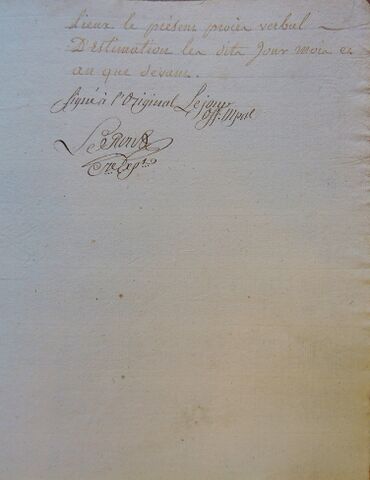 Lieux le présent procès verbal
D'estimation les dits Jour mois et
an que devant.
Signé à l'Original Lejour
off. Mpal